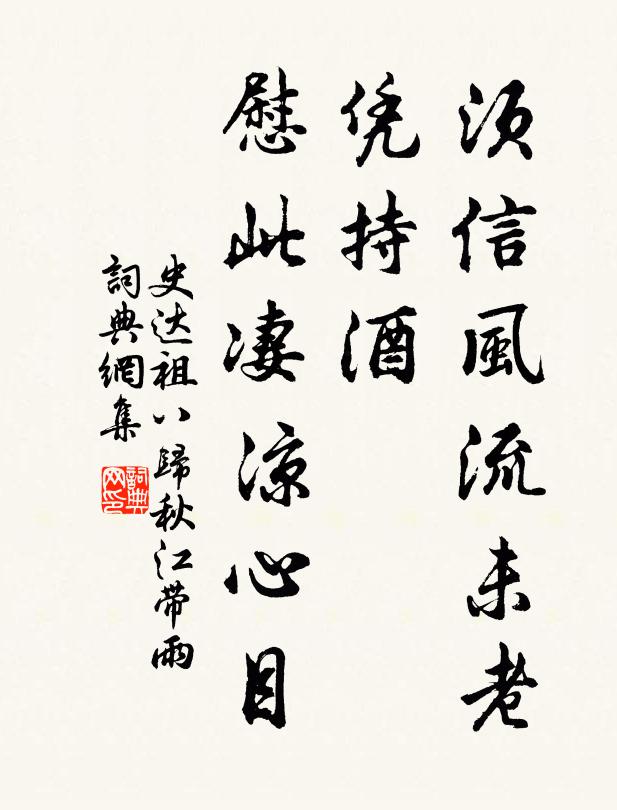 须信風流未老
凭持酒
慰此凄涼心目
史达祖八歸秋江带雨
詞典網集
詞典网印